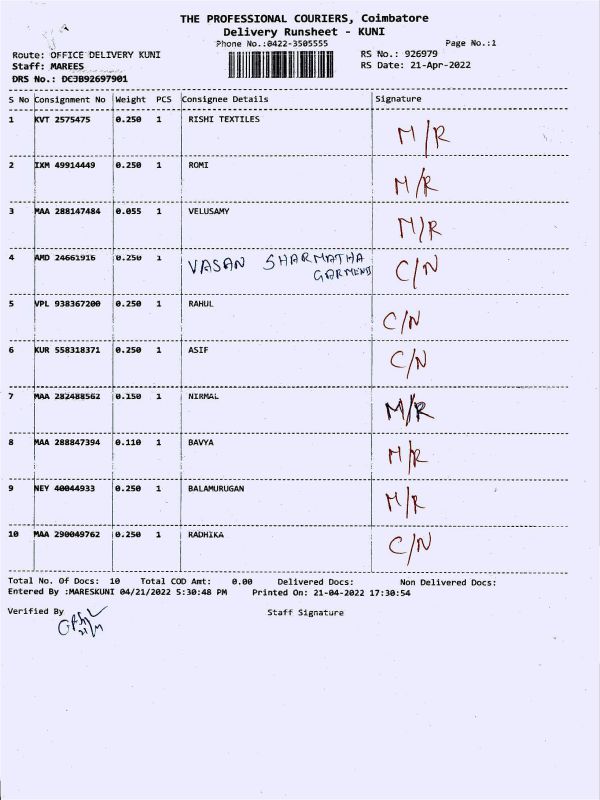 THE PROFESSIONAL COURIERS, Coimbatore
Delivery Runsheet - KUNI
Phone No.:0422-3505555 Page No.:1
Route: OFFICE DELIVERY KUNI RS No.: 926979
Staff: MAREES RS Date: 21-Apr-2022
DRS No.: DCJB92697901
S No Consignment No Weight PCS Consignee Details Signature
1 KVT 2575475 0.250 1 RISHI TEXTILES M/R
2 IXM 49914449 0.250 1 ROMI M/R
3 MAA 288147484 0.055 1 VELUSAMY M/R
4 AMD 24661916 0.250 1 VASAN SHARMATHA GARMENTS C/N
5 VPL 938367200 0.250 1 RAHUL C/N
6 KUR 558318371 0.250 1 ASIF C/N
7 MAA 282488562 0.150 1 NIRMAL M/R
8 MAA 288847394 0.110 1 BAVYA M/R
9 NEY 40044933 0.250 1 BALAMURUGAN M/R
10 MAA 290049762 0.250 1 RADHIKA C/N
Total No. Of Docs: 10 Total COD Amt: 0.00 Delivered Docs: Non Delivered Docs:
Entered By :MARESKUNI 04/21/2022 5:30:48 PM Printed On: 21-04-2022 17:30:54
Verified By Staff Signature